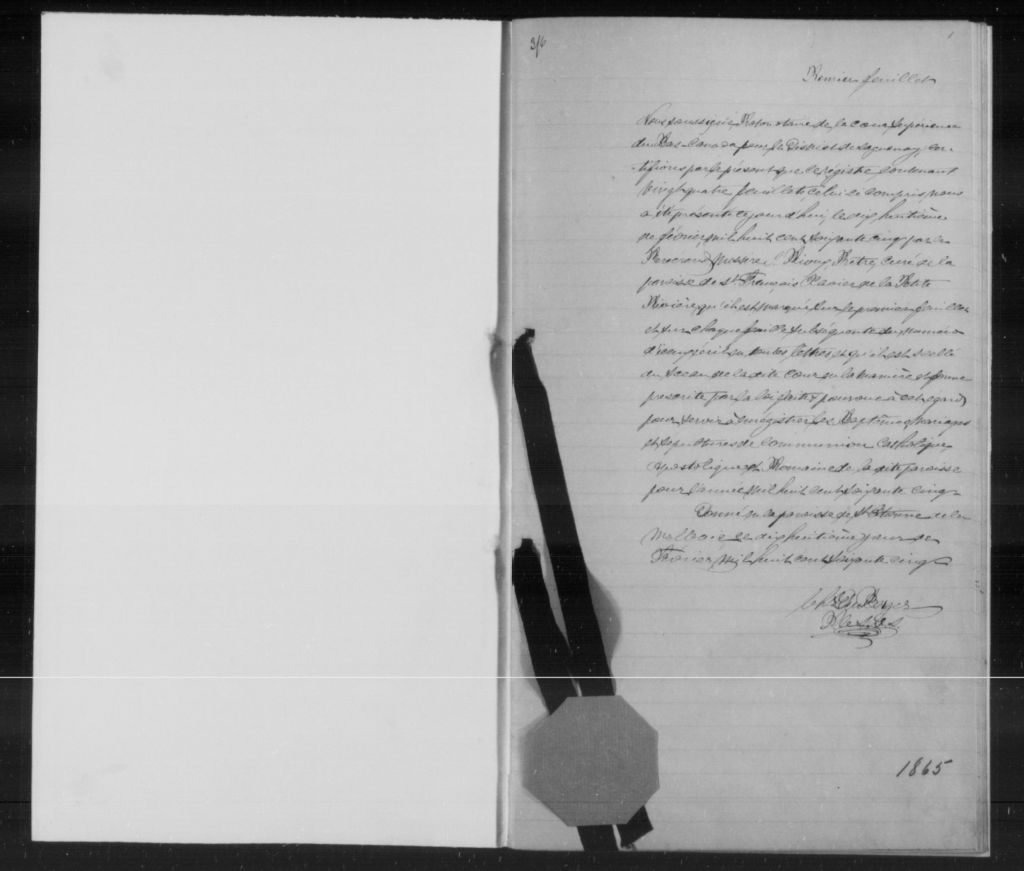 316
1
Premier feuillet
Nous soussigné, Protonotaire de la Cour Supérieure
du Bas-Canada pour le District de Saguenay, cer-
-tifions par le présent que le régistre, contenant
vingt quatre feuillets, celui ci compris, nous
a été présenté ce jour d'hui, le dix huitième
de février, mil huit cent soixante cinq par le
Révérend Messire Prêtre, curé de la
paroisse de St François Xavier de la Petite
Rivière, qu'il est marqué sur le premier feuillet
et sur chaque feuillet subséquent du numéro
d'iceux, écrit en toutes lettres et qu'il est scellé
du sceau de la dite Cour en la manière et forme
prescrite par la loi faite et pourvue à cet égard
pour servir à enrégistrer les Baptêmes, Mariages
et sépultures de communion Catholique,
Apostolique et Romaine de la dite paroisse
pour l'année mil huit cent soixante cinq
Donné en la paroisse de St Etienne de la
Malbaie le dix huitième jour de
Février, mil huit cent soixante cinq
Chs Du Berger
P. C. S. D. S.
1865